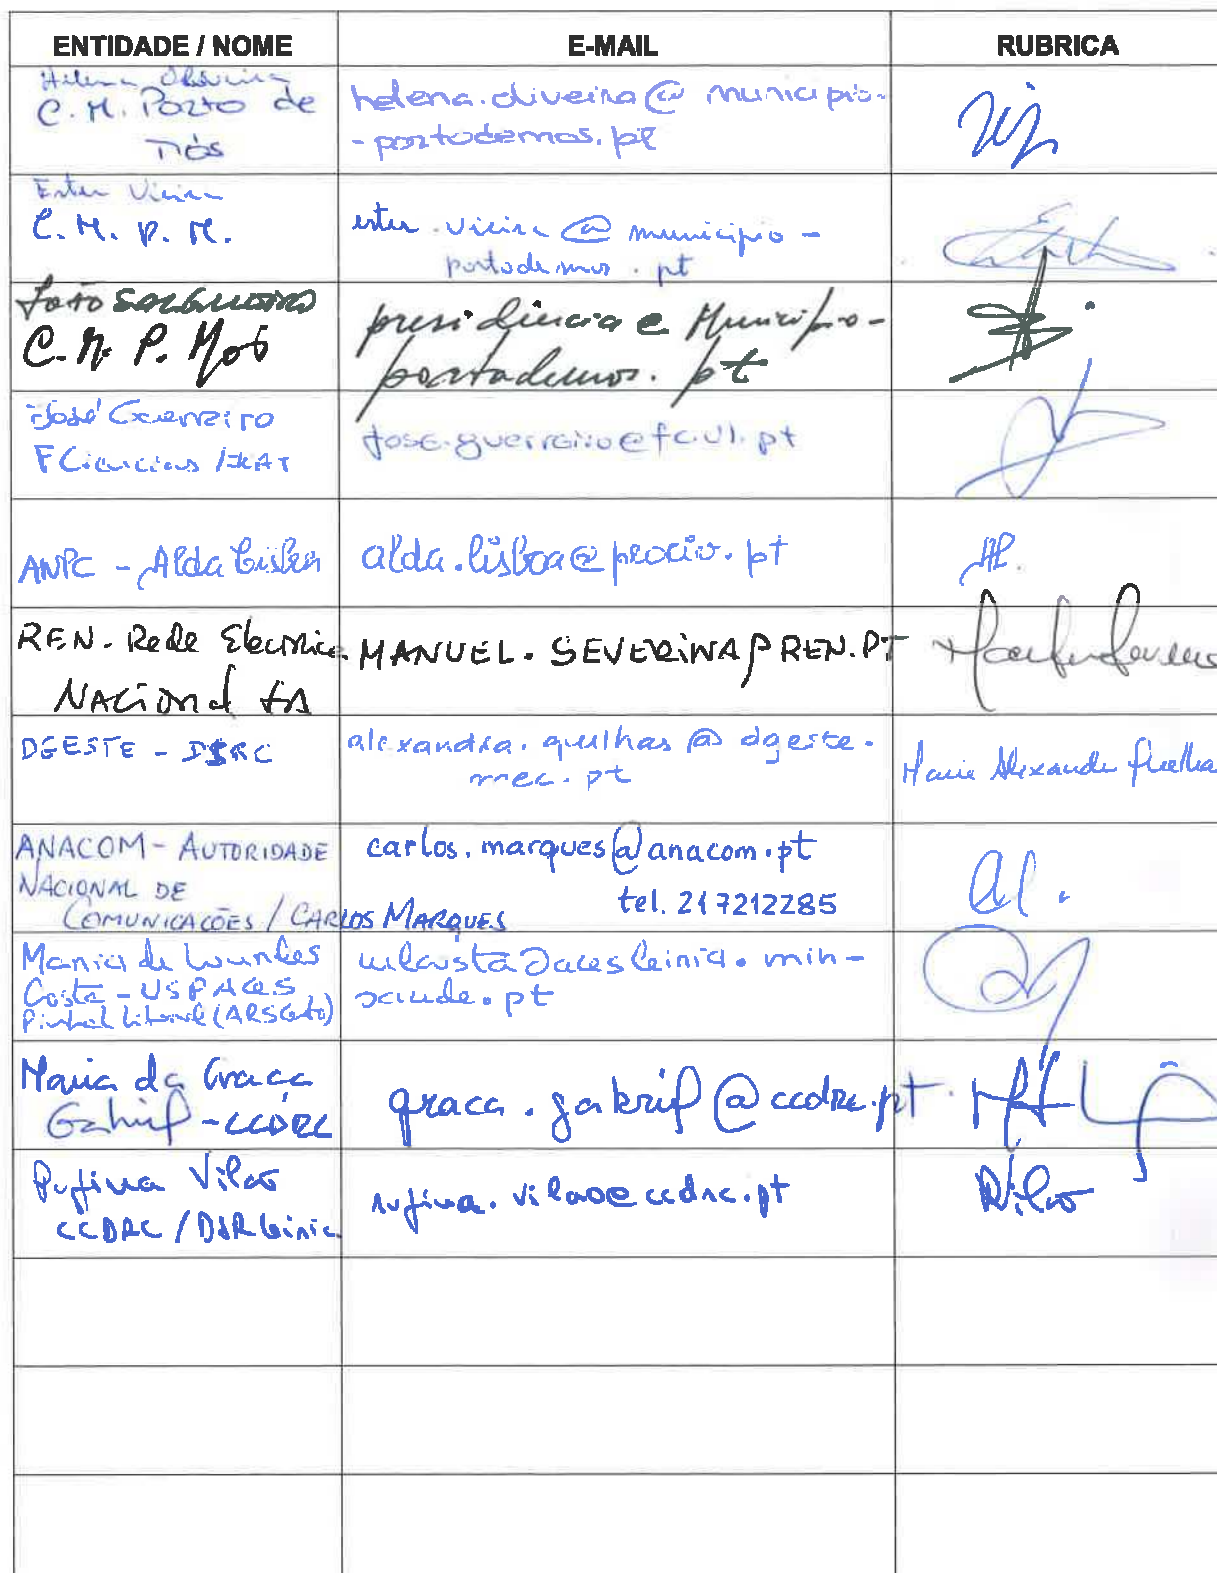 ENTIDADE / NOME E-MAIL RUBRICA
Helena Oliveira
C. M. Porto de
Mós
helena.oliveira@municipio-
-portodemos.pt
Ester Vieira
C. M. P. M.
ester.vieira@municipio-
portodemos.pt
João Salgueiro
C. M. P. Mos
presidencia e Municipio-
portodemos.pt
José Guerreiro
FCiencias /
jose.guerreiro@fc.ul.pt
ANPC - Alda Lisboa
alda.lisboa@prociv.pt
REN - Rede Electrica
Nacional SA
MANUEL.SEVERINO@REN.PT
DGESTE - DSRC
alexandra.quilhas@dgeste.
mec.pt
Maria Alexandra
ANACOM - AUTORIDADE
NACIONAL DE
COMUNICAÇÕES / CARLOS MARQUES
carlos.marques@anacom.pt
tel. 217212285
Maria de Lourdes
Costa - USP ACES
Pinhal Litoral (ARSCentro)
mlcosta@acesleiria.min-
saude.pt
Maria da Graça
Gabriel - CCDRC
graca.gabriel@ccdrc.pt
Rufina Vilão
CCDRC / DSR Leiria
rufina.vilao@ccdrc.pt
RVilão